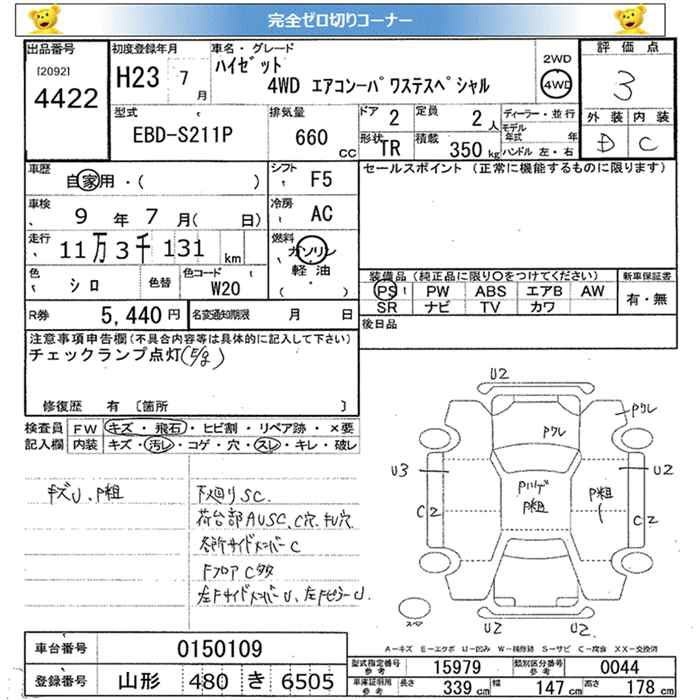 完全ゼロ切りコーナー
出品番号
[2092]
4422
初度登録年月
H23 7 月
車名・グレード
ハイゼット
4WD エアコン・パワステスペシャル
2WD
4WD
評価点
3
外装 内装
D C
型式
EBD-S211P
排気量
660 CC
ドア 2
定員 2 人
形状 TR
積載 350 kg
ディーラー・並行
モデル年式 年
ハンドル 左・右
車歴
自家用・( )
シフト F5
車検
9 年 7 月( 日)
冷房 AC
走行
11万3千131 km
燃料
ガソリン
軽油
( )
色 シロ
色替
色コード W20
R券 5,440 円
名変通知期限 月 日
セールスポイント (正常に機能するものに限ります)
装備品 (純正品に限り○をつけてください)
PS PW ABS エアB AW
SR ナビ TV カワ
新車保証書
有・無
後日品
注意事項申告欄(不具合内容等は具体的に記入して下さい)
チェックランプ点灯(E/g)
修復歴 有 [箇所 ]
検査員記入欄
FW キズ・飛石・ヒビ割・リペア跡・×要
内装 キズ・汚レ・コゲ・穴・スレ・キレ・破レ
キズU、P粗
下廻りSC.
荷台部AUSC、C穴、キU穴
各所サイドメンバーC
FフロアC多数
左FサイドメンバーU、左FピラーU.
U2
Pワレ
Pワレ
U3
U2
Pハゲ
P粗
P粗
C2
C2
スペア
U2
U2
A-キズ E-エクボ U-凹み W-補修跡 S-サビ C-腐食 XX-交換済
車台番号 0150109
登録番号 山形 480 き 6505
型式指定番号 参考 15979
類別区分番号 参考 0044
車庫証明用 参考 長さ 339 cm 幅 147 cm 高さ 178 cm